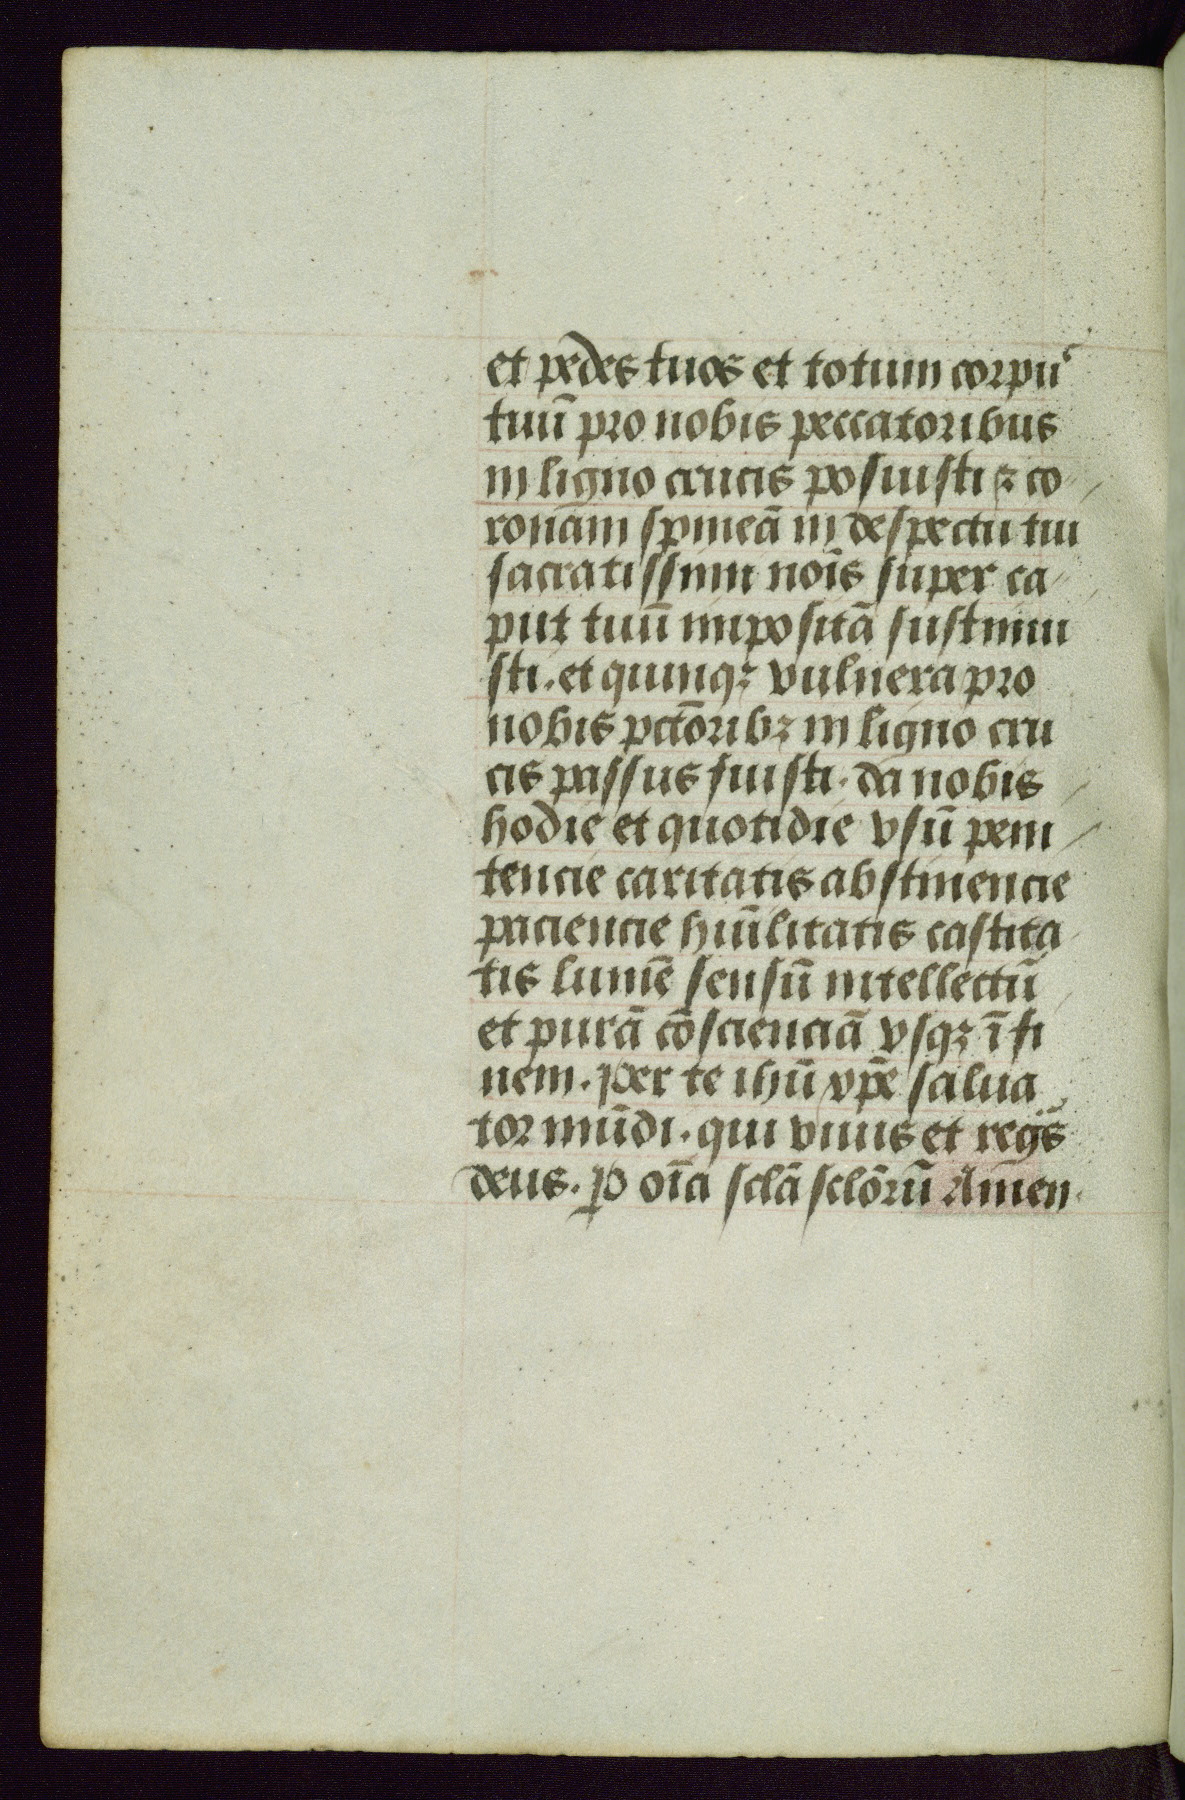 et pedes tuos et totum corpu᷒
tuū pro nobis peccatoribus
in ligno crucis posuisti ⁊ co
ronam spineā in despectu tui
sacratissimi noīs super ca
put tuū impositā sustinui
sti. et quinqꝫ vulnera pro
nobis pctōribꝫ in ligno cru
cis passus fuisti. da nobis
hodie et quotidie vsū peni
tencie caritatis abstinencie
paciencie hūilitatis castita
tis lumē sensū intellectū
et purā cōscienciā vsqꝫ ī fi
nem. per te ihū xp̄e salua
tor mūdi. qui viuis et regs̄
deus. ꝑ oīa sclā sclōrū Amen.